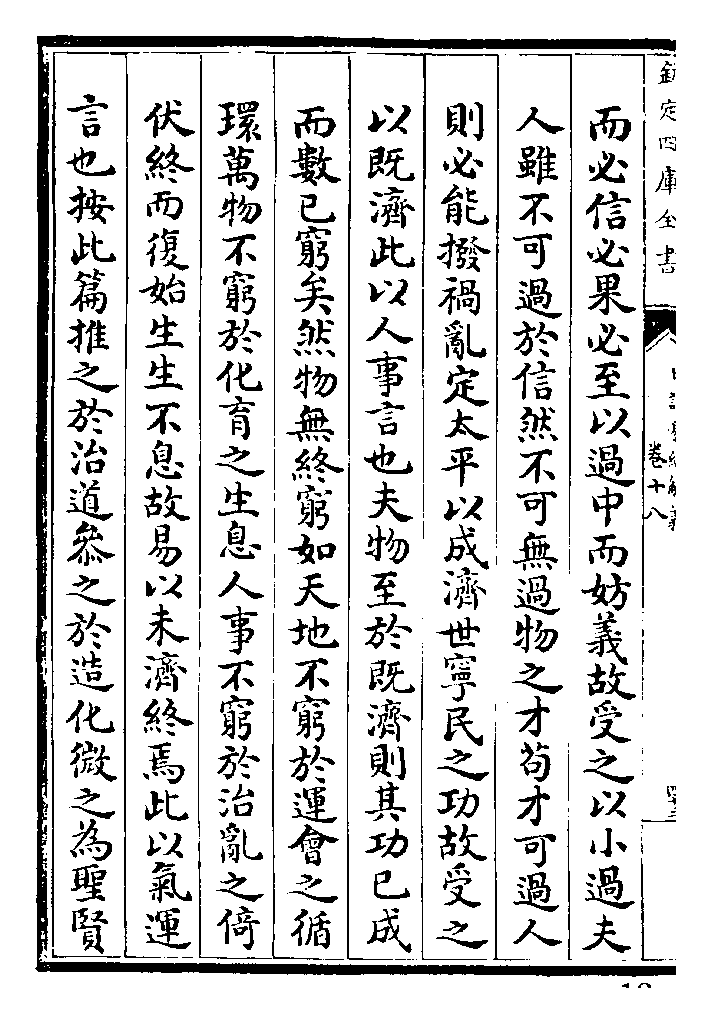 欽定四庫全書
卷十八
而必信必果必至以過中而妨義故受之以小過夫
人雖不可過於信然不可無過物之才苟才可過人
則必能撥禍亂定太平以成濟世寧民之功故受之
以既濟此以人事言也夫物至於既濟則其功已成
而數已窮矣然物無終窮如天地不窮於運會之循
環萬物不窮於化育之生息人事不窮於治亂之倚
伏終而復始生生不息故易以未濟終焉此以氣運
言也按此篇推之於治道叅之於造化微之為聖賢